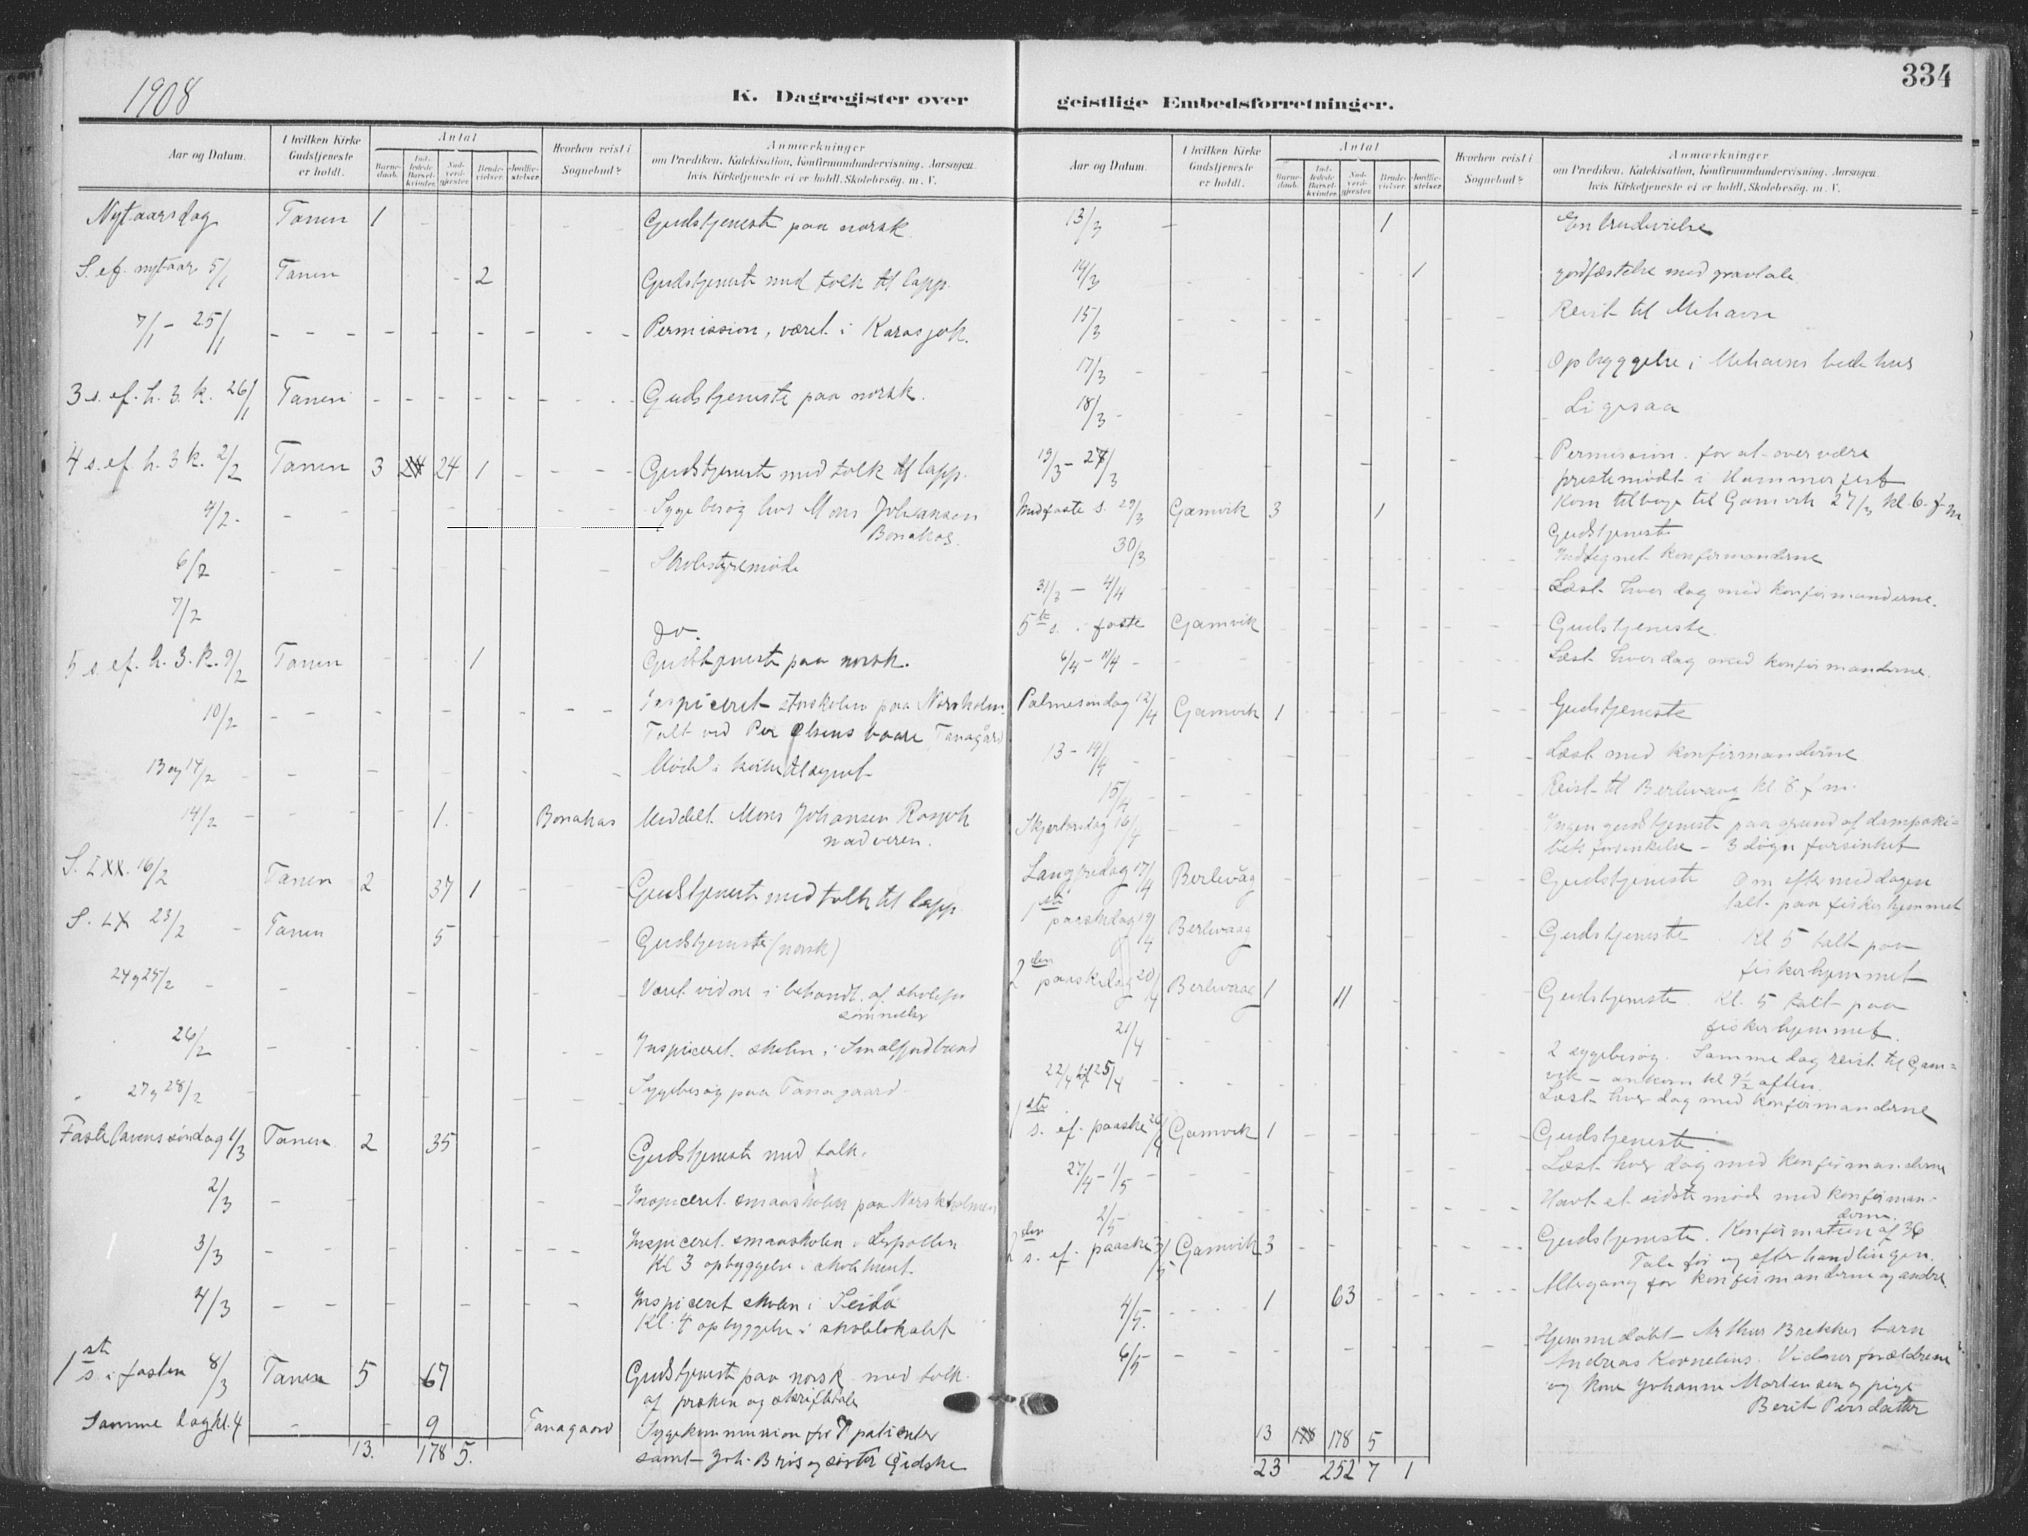 1908
334
K. Dagregister over geistlige Embedsforretninger.
Aar og Datum.
I hvilken Kirke Gudstjeneste er holdt.
Antal
Barnedaab.
Indledede Barselkvinder.
Nadverdgjester.
Brudevielser.
Jordfæstelser.
Hvorhen reist i Sognebud?
Anmærkninger
om Prædiken, Katekisation, Konfirmandundervisning, Aarsagen
hvis Kirketjeneste ei er holdt, Skolebesøg, m. V.
Nytaarsdag Tanen 1 Gudstjeneste paa norsk
S. ef. nytaar 5/1 Tanen 2 Gudstjeneste med tolk til lapp.
7/1 - 25/1 Permission, været i Karasjok.
3 s. ef. h. 3 k. 26/1 Tanen Gudstjeneste paa norsk.
4 s. ef. h. 3 k. 2/2 Tanen 3 24 24 1 Gudstjeneste med tolk til lapp.
4/2 Sygebesøg hos Mons Johansen
Bonakas.
6/2 Skolestyremøde
7/2 do.
5 s. ef. h. 3. k. 9/2 Tanen 1 Gudstjeneste paa norsk.
10/2 Inspiceret storskolen paa Norsholm.
Talt ved Per Olsens baare Tanagård
13 og 14/2 Møde i kirketilsynet
14/2 1. Bonakas Meddelt Mons Johansen Rasjok
nadveren.
S. LXX. 16/2 Tanen 2 37 1 Gudstjeneste med tolk til lapp.
S. LX 23/2 Tanen 5 Gudstjeneste (norsk)
24 og 25/2 Været vidne i behandl. af skolefor
sømmelser
26/2 Inspiceret skolen i Smalfjordbund
27 og 28/2 Sygebesøg paa Tanagaard
Fastelavenssøndag 1/3 Tanen 2 35 Gudstjeneste med tolk.
2/3 Inspiceret smaaskolen paa Norskholmen
3/3 Inspiceret smaaskolen i Leirpollen
Kl 3 opbyggelse i skolehuset.
4/3 Inspiceret skolen i Seida
Kl. 4 opbyggelse i skolelokalet
1ste s. i fasten 8/3 Tanen 5 67 Gudstjeneste paa norsk med tolk
af præken og skriftetale
Samme dag kl. 4 9 Tanagaard Sygekommunion for 7 patienter
samt Joh. Briis og søster Gidske
13. 178 5.
Aar og Datum.
I hvilken Kirke Gudstjeneste er holdt.
Antal
Barnedaab.
Indledede Barselkvinder.
Nadverdgjester.
Brudevielser.
Jordfæstelser.
Hvorhen reist i Sognebud?
Anmærkninger
om Prædiken, Katekisation, Konfirmandundervisning, Aarsagen
hvis Kirketjeneste ei er holdt, Skolebesøg, m. V.
13/3 1 En brudevielse
14/3 1 jordfæstelse med gravtale
15/3 Reist til Mehavn
17/3 Opbyggelse i Mehavns bedehus
18/3 Ligesaa
19/3 - 27/3 Permission for at overvære
prestemødet i Hammerfest
Kom tilbage til Gamvik 27/3 kl. 6 f. m.
Midfaste s. 29/3 Gamvik 3 1 Gudstjeneste
30/3 Indtegnet konfirmanderne
31/3 - 4/4 Læst hver dag med konfirmanderne.
5te s. i faste Gamvik Gudstjeneste.
6/4 - 11/4 Læst hver dag med konfirmanderne.
Palmesøndag 12/4 Gamvik 1 Gudstjeneste
13 - 14/4 Læst med konfirmanderne
15/4 Reist til Berlevaag kl 8 f m.
Skjertorsdag 16/4 Ingen gudstjeneste paa grund af dampski-
bets forsinkelse - 3 døgn forsinket
Langfredag 17/4 Berlevåg Gudstjeneste Om eftermiddagen
talt paa fiskerhjemmet
1ste paaskedag 19/4 Berlevaag Gudstjeneste Kl 5 talt paa
fiskerhjemmet
2den paaskedag 20/4 Berlevaag 1 11 Gudstjeneste Kl. 5 talt paa
fiskerhjemmet.
21/4 2 sygebesøg. Samme dag reist til Gam-
vik - ankom kl 9 1/2 aften.
22/4 til 25/4 Læst hver dag med konfirmanderne
1ste s. ef. paaske 26/4 Gamvik 1 Gudstjeneste
27/4 - 1/5 Læst hver dag med konfirmanderne
2/5 Havt et sidste møde med konfirman-
derne.
2den s. ef. paaske 3/5 Gamvik 3 Gudstjeneste. Konfirmation af 36
Tale før og efter handlingen.
4/5. 1 63 Altergang for konfirmanderne og andre
6/5 Hjemmedøbt Arthur Brekkes barn
Andreas Kornelius. Vidner forældrene
og kone Johanne Mortensen og pige
Berit Persdatter
13 178 178 5
23 252 7 1